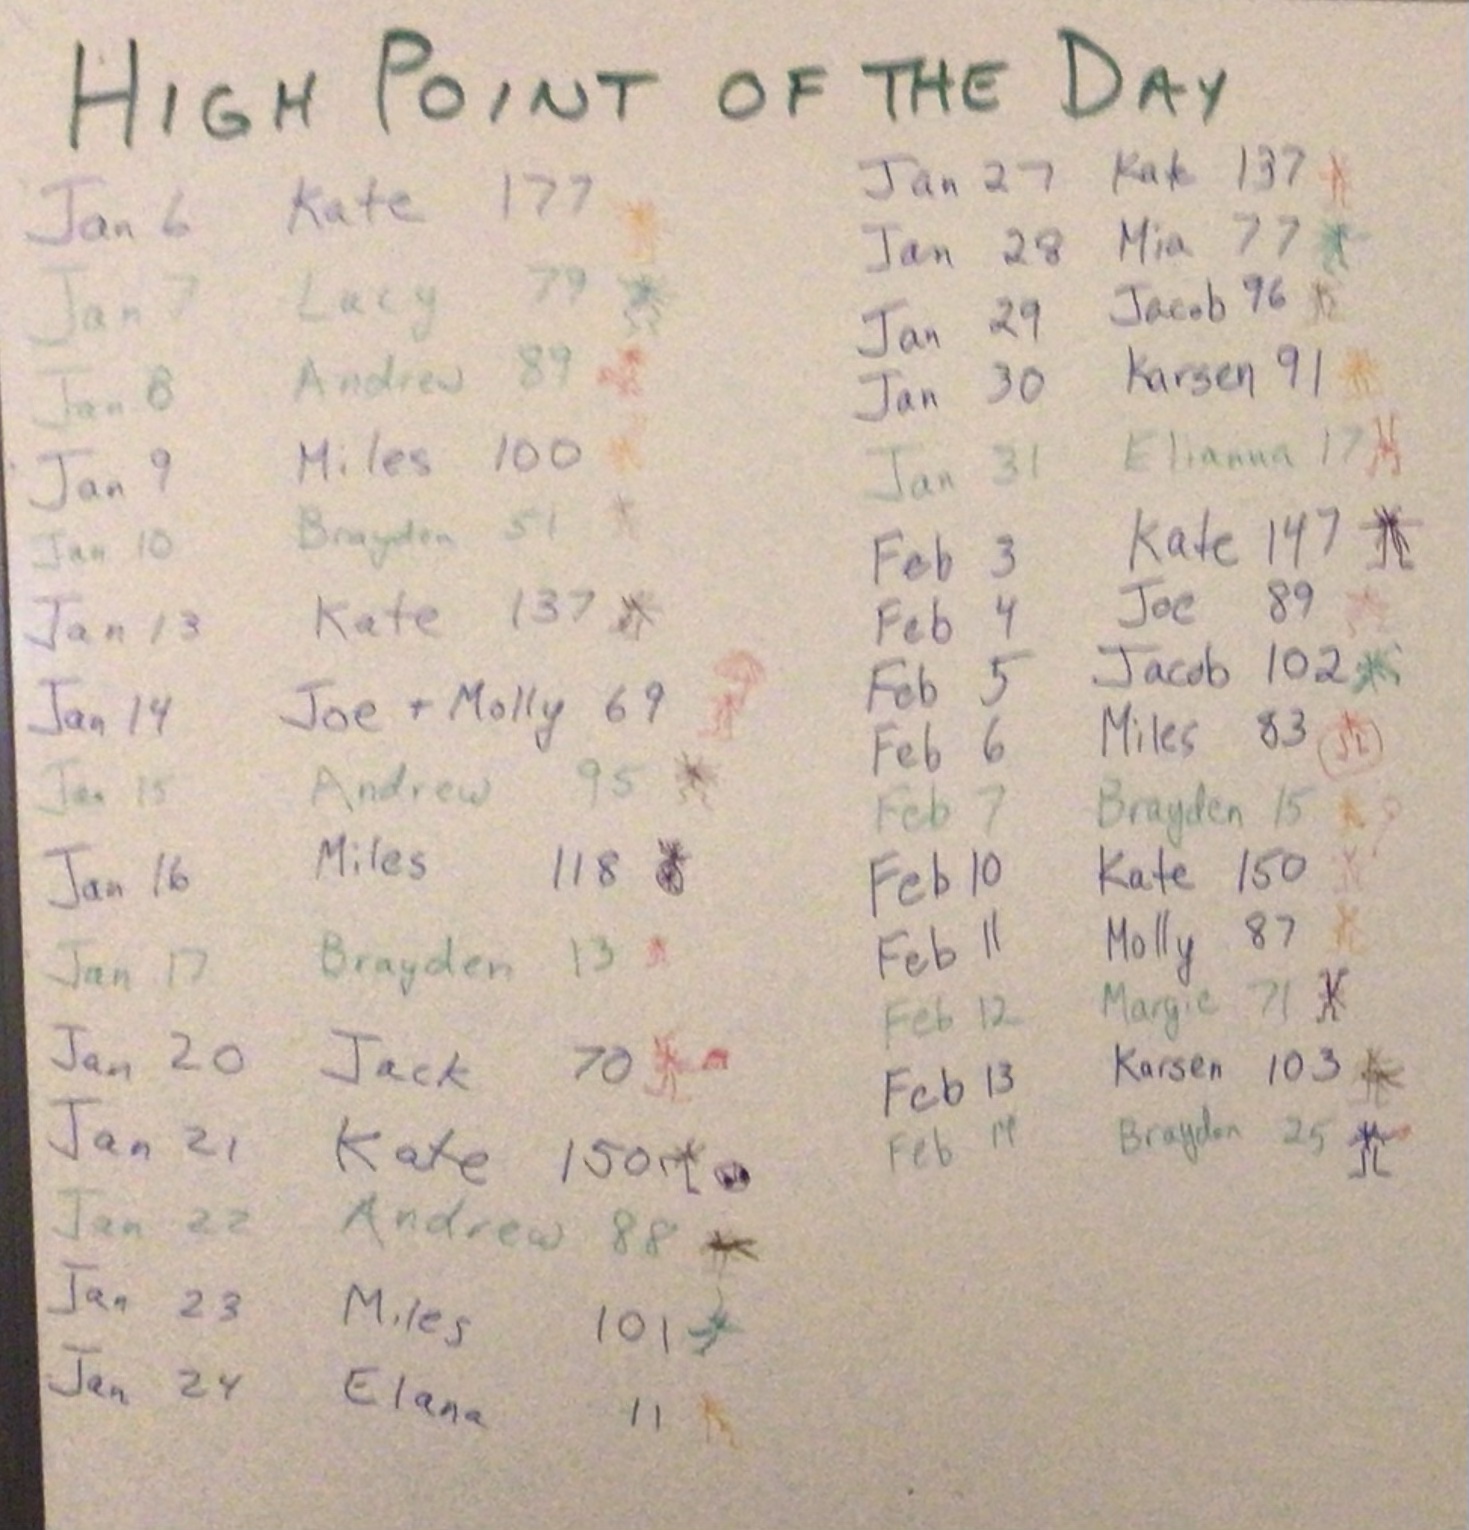 HIGH POINT OF THE DAY
Jan 6 Kate 177
Jan 7 Lacy 79
Jan 8 Andrew 89
Jan 9 Miles 100
Jan 10 Brayden 51
Jan 13 Kate 137
Jan 14 Joe + Molly 69
Jan 15 Andrew 95
Jan 16 Miles 118
Jan 17 Brayden 13
Jan 20 Jack 70
Jan 21 Kate 150
Jan 22 Andrew 88
Jan 23 Miles 101
Jan 24 Elana 11
Jan 27 Kate 137
Jan 28 Mia 77
Jan 29 Jacob 96
Jan 30 Karsen 91
Jan 31 Elianna 17
Feb 3 Kate 147
Feb 4 Joe 89
Feb 5 Jacob 102
Feb 6 Miles 83
Feb 7 Brayden 15
Feb 10 Kate 150
Feb 11 Molly 87
Feb 12 Margie 71
Feb 13 Karsen 103
Feb 14 Brayden 25